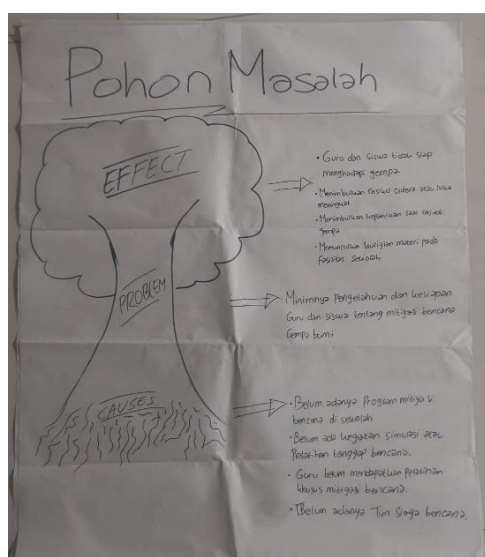 Pohon Masalah
EFFECT
• Guru dan siswa tidak siap
menghadapi gempa
• Menimbulkan resiko cidera atau luka
meningkat
• Menimbulkan kepanikan saat terjadi
gempa
• Memunculkan kerugian materi pada
Fasilitas sekolah
PROBLEM
Minimnya Pengetahuan dan kesiapan
Guru dan siswa tentang mitigasi bencana
Gempa bumi
CAUSES
• Belum adanya Program mitigasi
bencana di sekolah
• Belum ada kegiatan simulasi atau
Pelatihan tanggap bencana.
• Guru belum mendapatkan Pelatihan
khusus mitigasi bencana.
• Belum adanya Tim Siaga bencana.